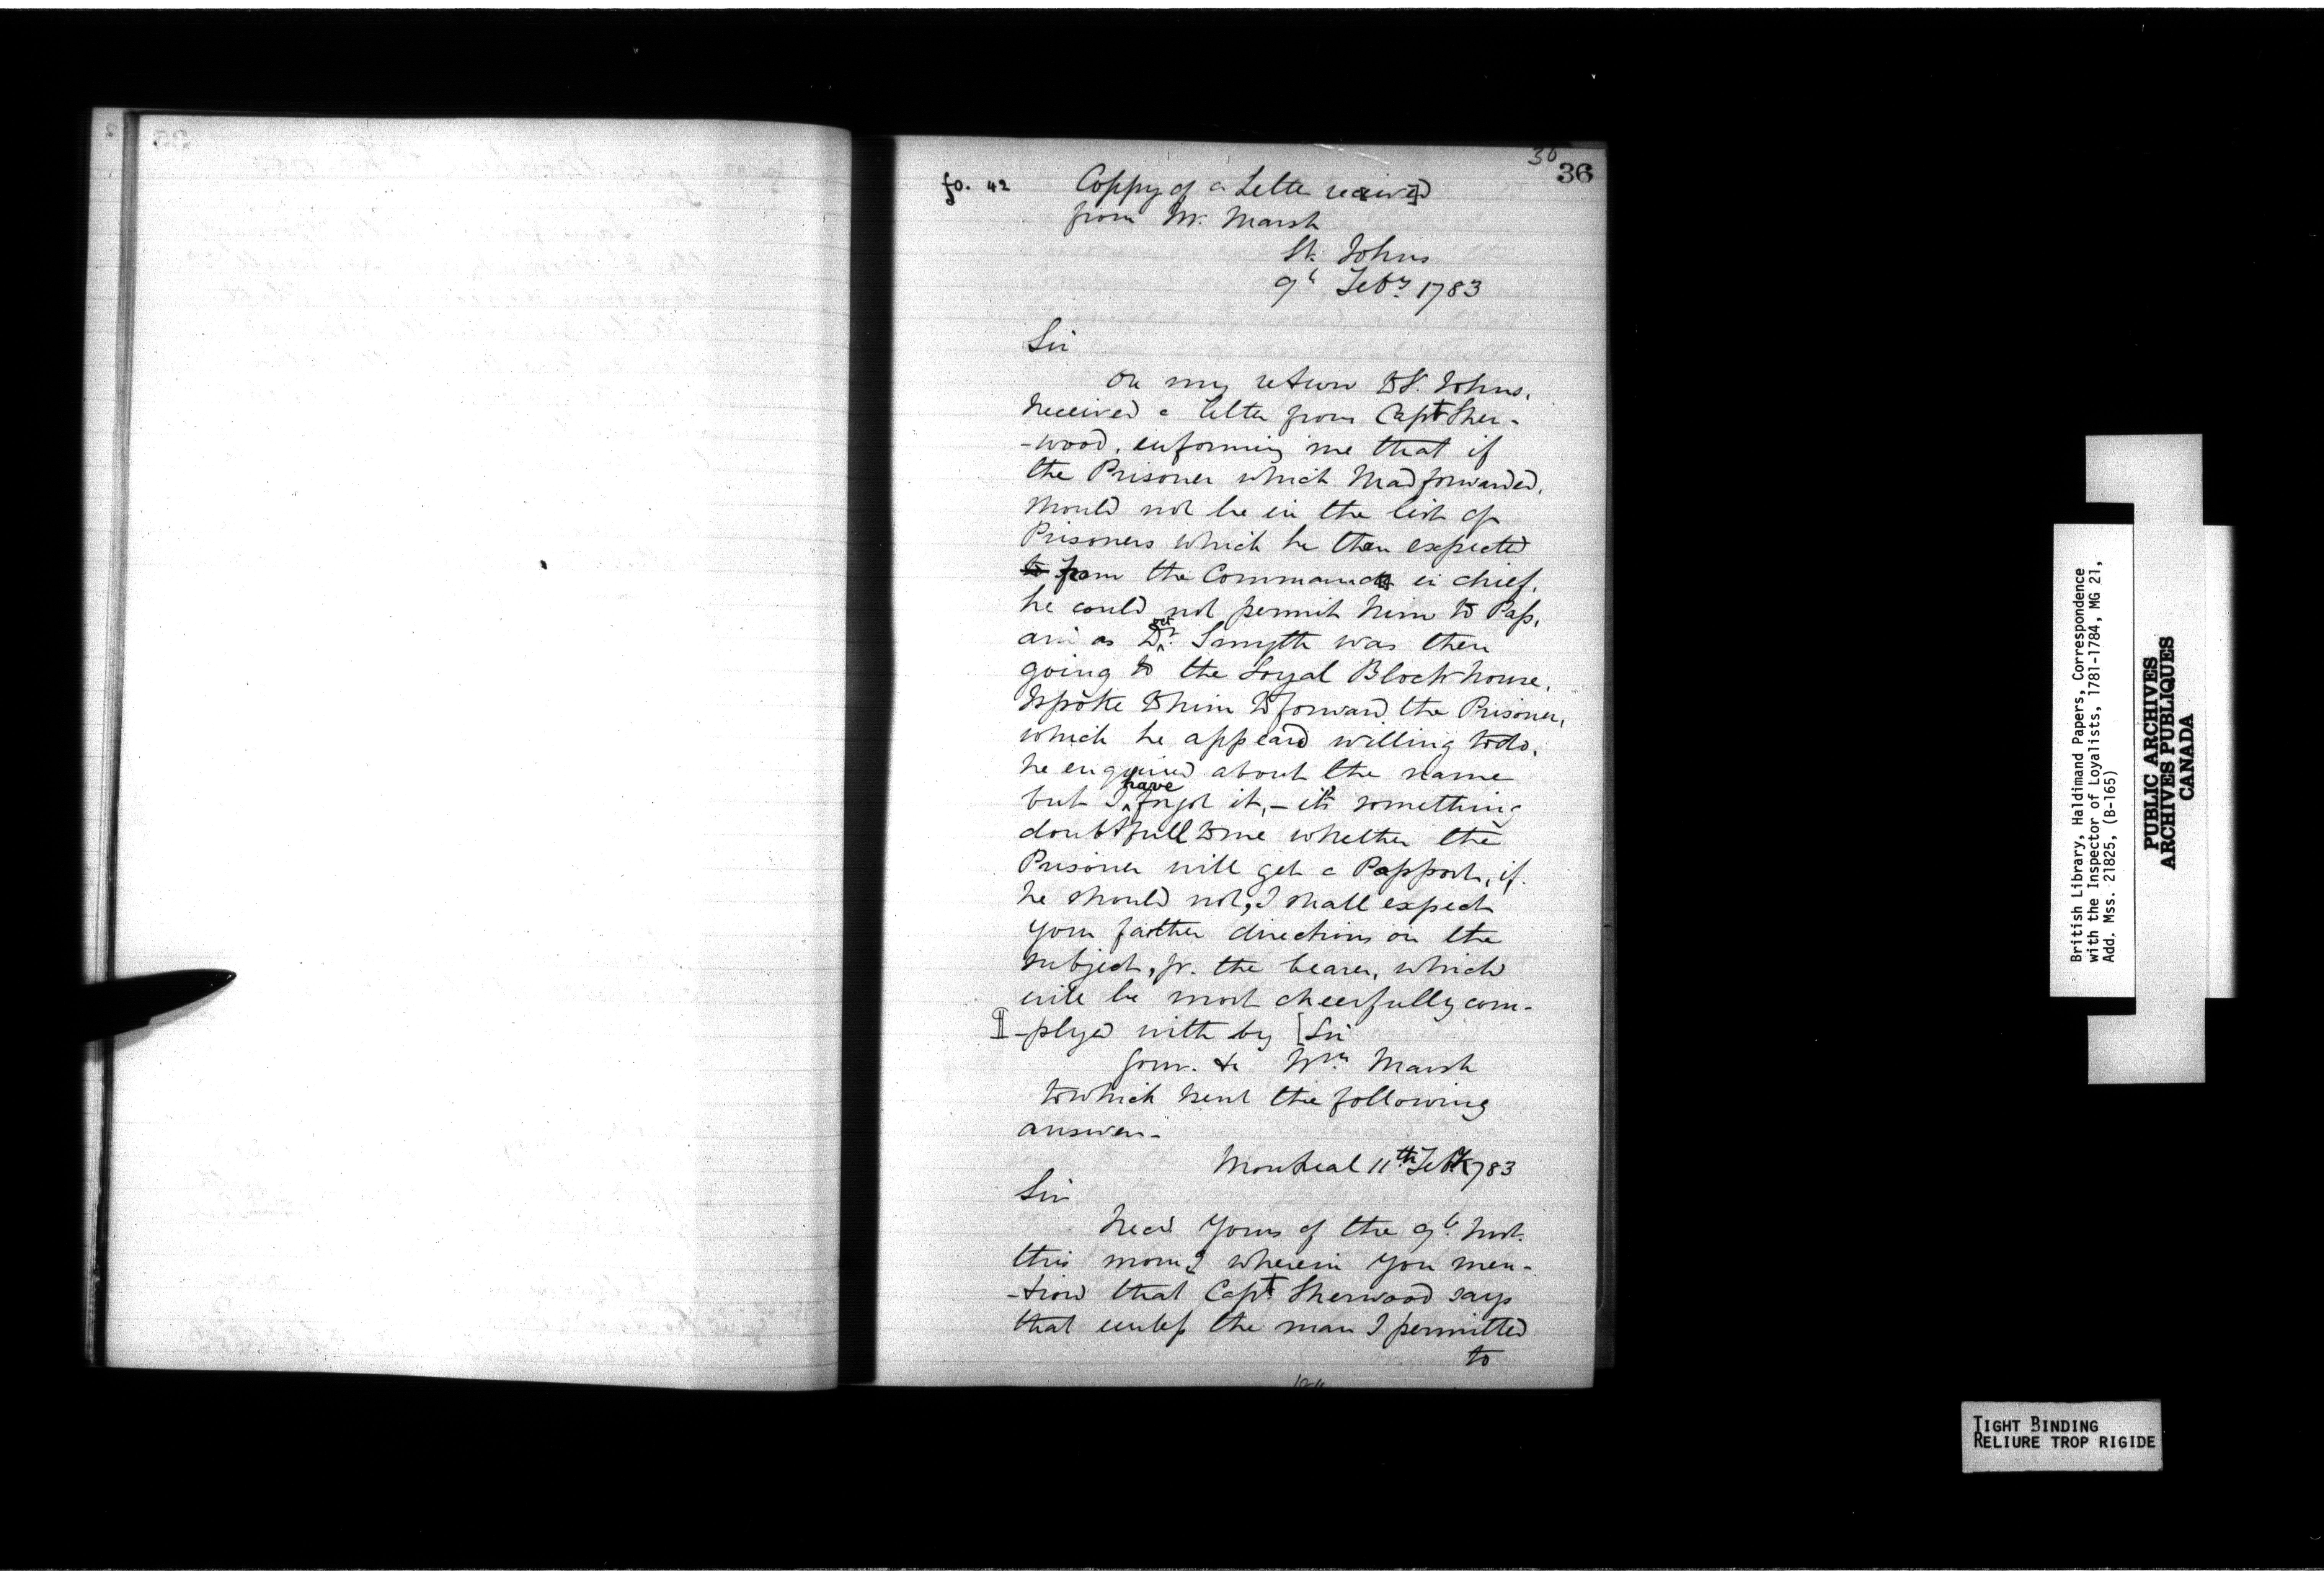 30
36
fo. 42
Coppy of a Letter received
from Mr. Marsh
St. Johns
9h Feby. 1783
Sir
On my return to St. Johns,
received a letter from Capt Sher-
-wood, enforming me that if
the Prisoner which I had forwarded,
should not be in the list of
Prisoners which he then expected
to from the Commander in chief,
he could not permit him to Pass,
and as Doctr. Smyth was then
going to the Loyal Block house,
I spoke to him to forward the Prisoner,
which he appeard willing to do,
he enquired about the name
but I have forgot it, - it's something
doubtfull to me whether the
Prisoner will get a Passport, if
he should not, I shall expect
your farther directions on the
subject, pr. the bearer, which
will be most cheerfully com-
-plyed with by [Sir
Your. &c Wm. Marsh
to which I sent the following
answer -
Montreal 11th Feby 1783
Sir
I recd. Yours of the 9h. Inst.
this morng wherein You men-
-tion that Capt Sherwood says
that unless the man I permitted
to
British Library, Haldimand Papers, Correspondence
with the Inspector of Loyalists, 1781-1784, MG 21,
Add. Mss. 21825, (B-165)
PUBLIC ARCHIVES
ARCHIVES PUBLIQUES
CANADA
TIGHT BINDING
RELIURE TROP RIGIDE